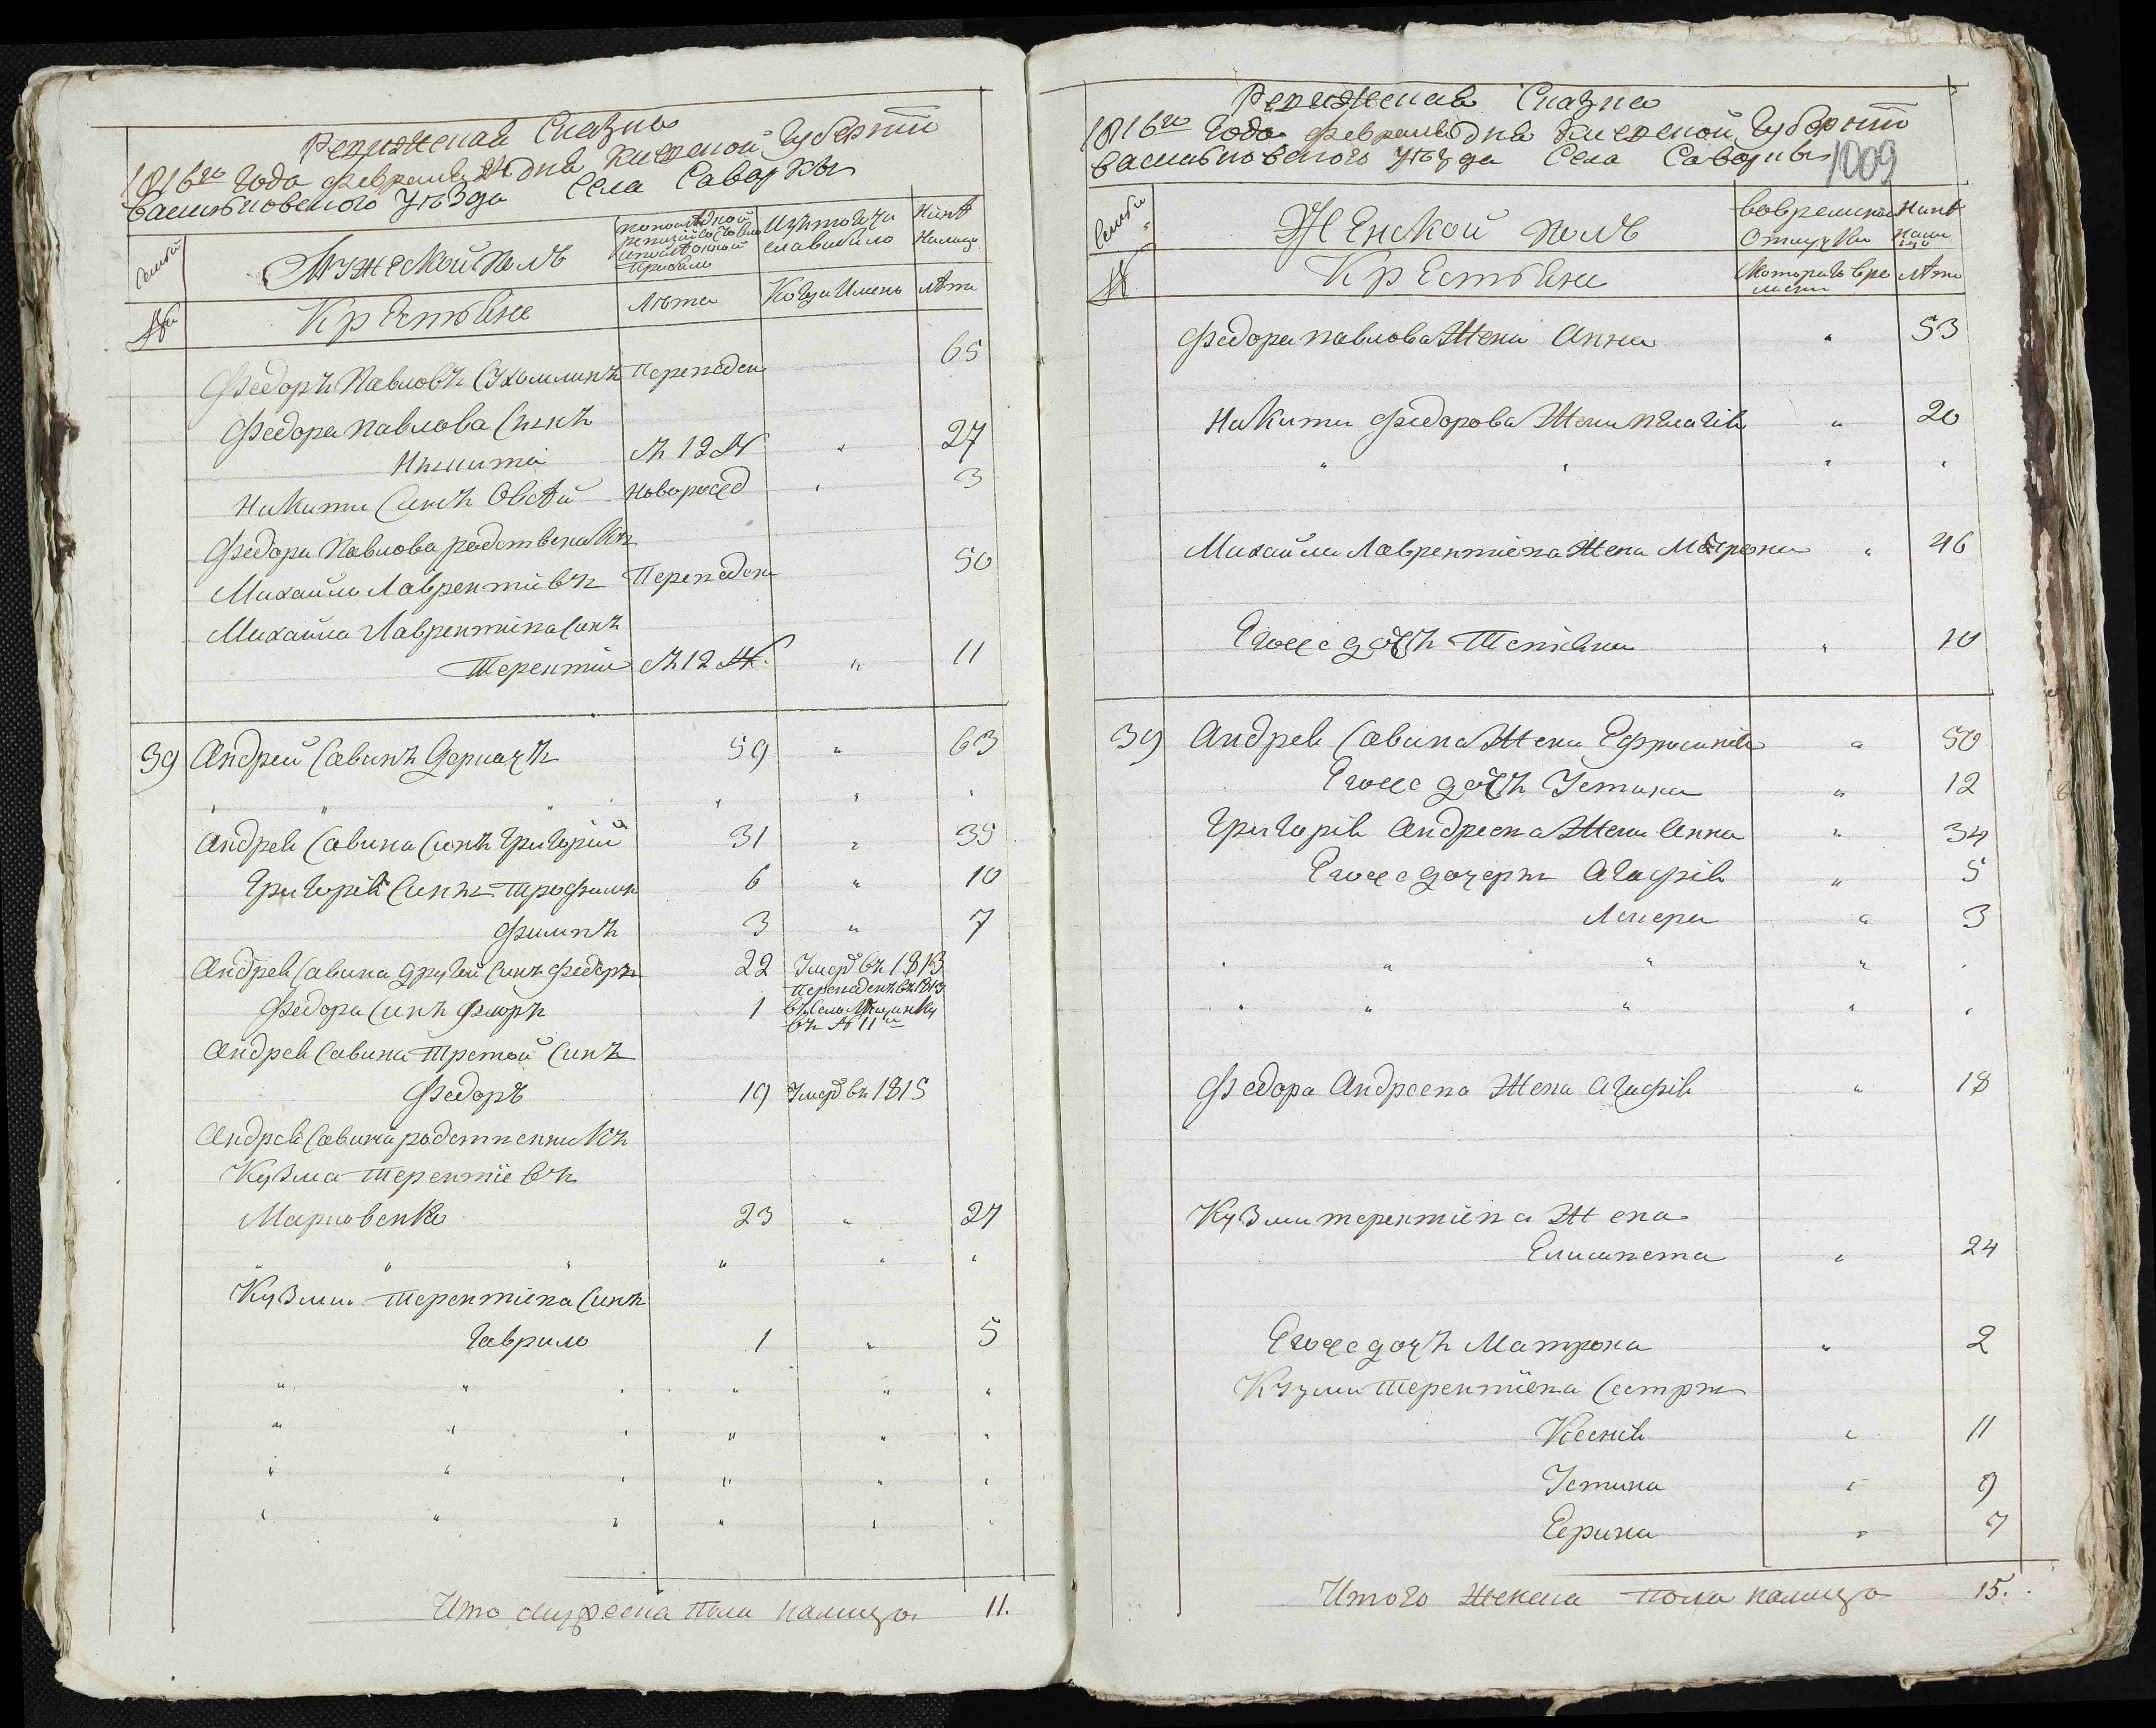 Ревижская Сказка
1816го Года февраля дня Киевской Губернии
Васильковского Уѣзда Села Саварки
Семьи
Мужеской полъ
по последной ревизии состояло и после оной прибыло
Изъ того числа выбыло
Нинѣ Налицо
№
Крестьяне
Лѣта
Когда Именно
Лѣта
Федоръ Павловъ Сухомлинъ Переведен 65
Федора Павлова Сынъ
Никита 27
Никити Синъ Овсѣй Новорожд " 3
Федора Павлова родственикъ
Михайло Лаврентіевъ Переведен 50
Михайла Лаврентіева Синъ
Терентій " 11
39 Андрей Савинъ Деркачъ 59 " 63
" " " " " "
Андрея Савина Синъ Григорій 31 " 35
Григорія Сини Трофимъ 6 " 10
Филипъ 3 " 7
Андрея Савина другой Синъ Федоръ 22 Умер въ 1813
Федора Синъ Флоръ 1 Переведенъ въ 1813
въ Село
въ № 11й
Андрея Савина Третой Синъ
Федоръ 19 Умер въ 1815
Андрея Савина родственникъ
Кузма Терентіевъ
Марковенко 23 " 27
" " " " " "
Кузми Терентіева Синъ
Гаврило 1 " 5
" " " " " "
" " " " " "
" " " " " "
" " " " " "
Итого мужеска пола налицо 11.
Ревижская Сказка
1816го Года февраля дня Киевской Губернии
Васильковского Уѣзда Села Саварки
1009
Семьи
Женской полъ
Вовременной Отлучки
Нинѣ налицо
№
Крестьяне
Скоторого времени
Лѣта
Федора Павлова Жена Анна " 53
Никити Федорова Жена Пелагія " 20
" " " "
Михайли Лаврентіева Жена Мотрона " 46
Егоже дочь Тетіяна " 10
39 Андрея Савина Жена Ефросинія " 50
Егоже дочь Устина " 12
Григорія Андреева Жена Анна " 34
Егоже дочери Агафія " 5
" 3
" " " " "
" " " " "
Федора Андреева Жена Агафія " 18
Кузми Терентіева Жена
Елисавета " 24
Егоже дочь Матрона " 2
Кузми Терентіева Сестри
Ксенія " 11
Устина " 9
Ерина " 7
Итого женска пола налицо 15.